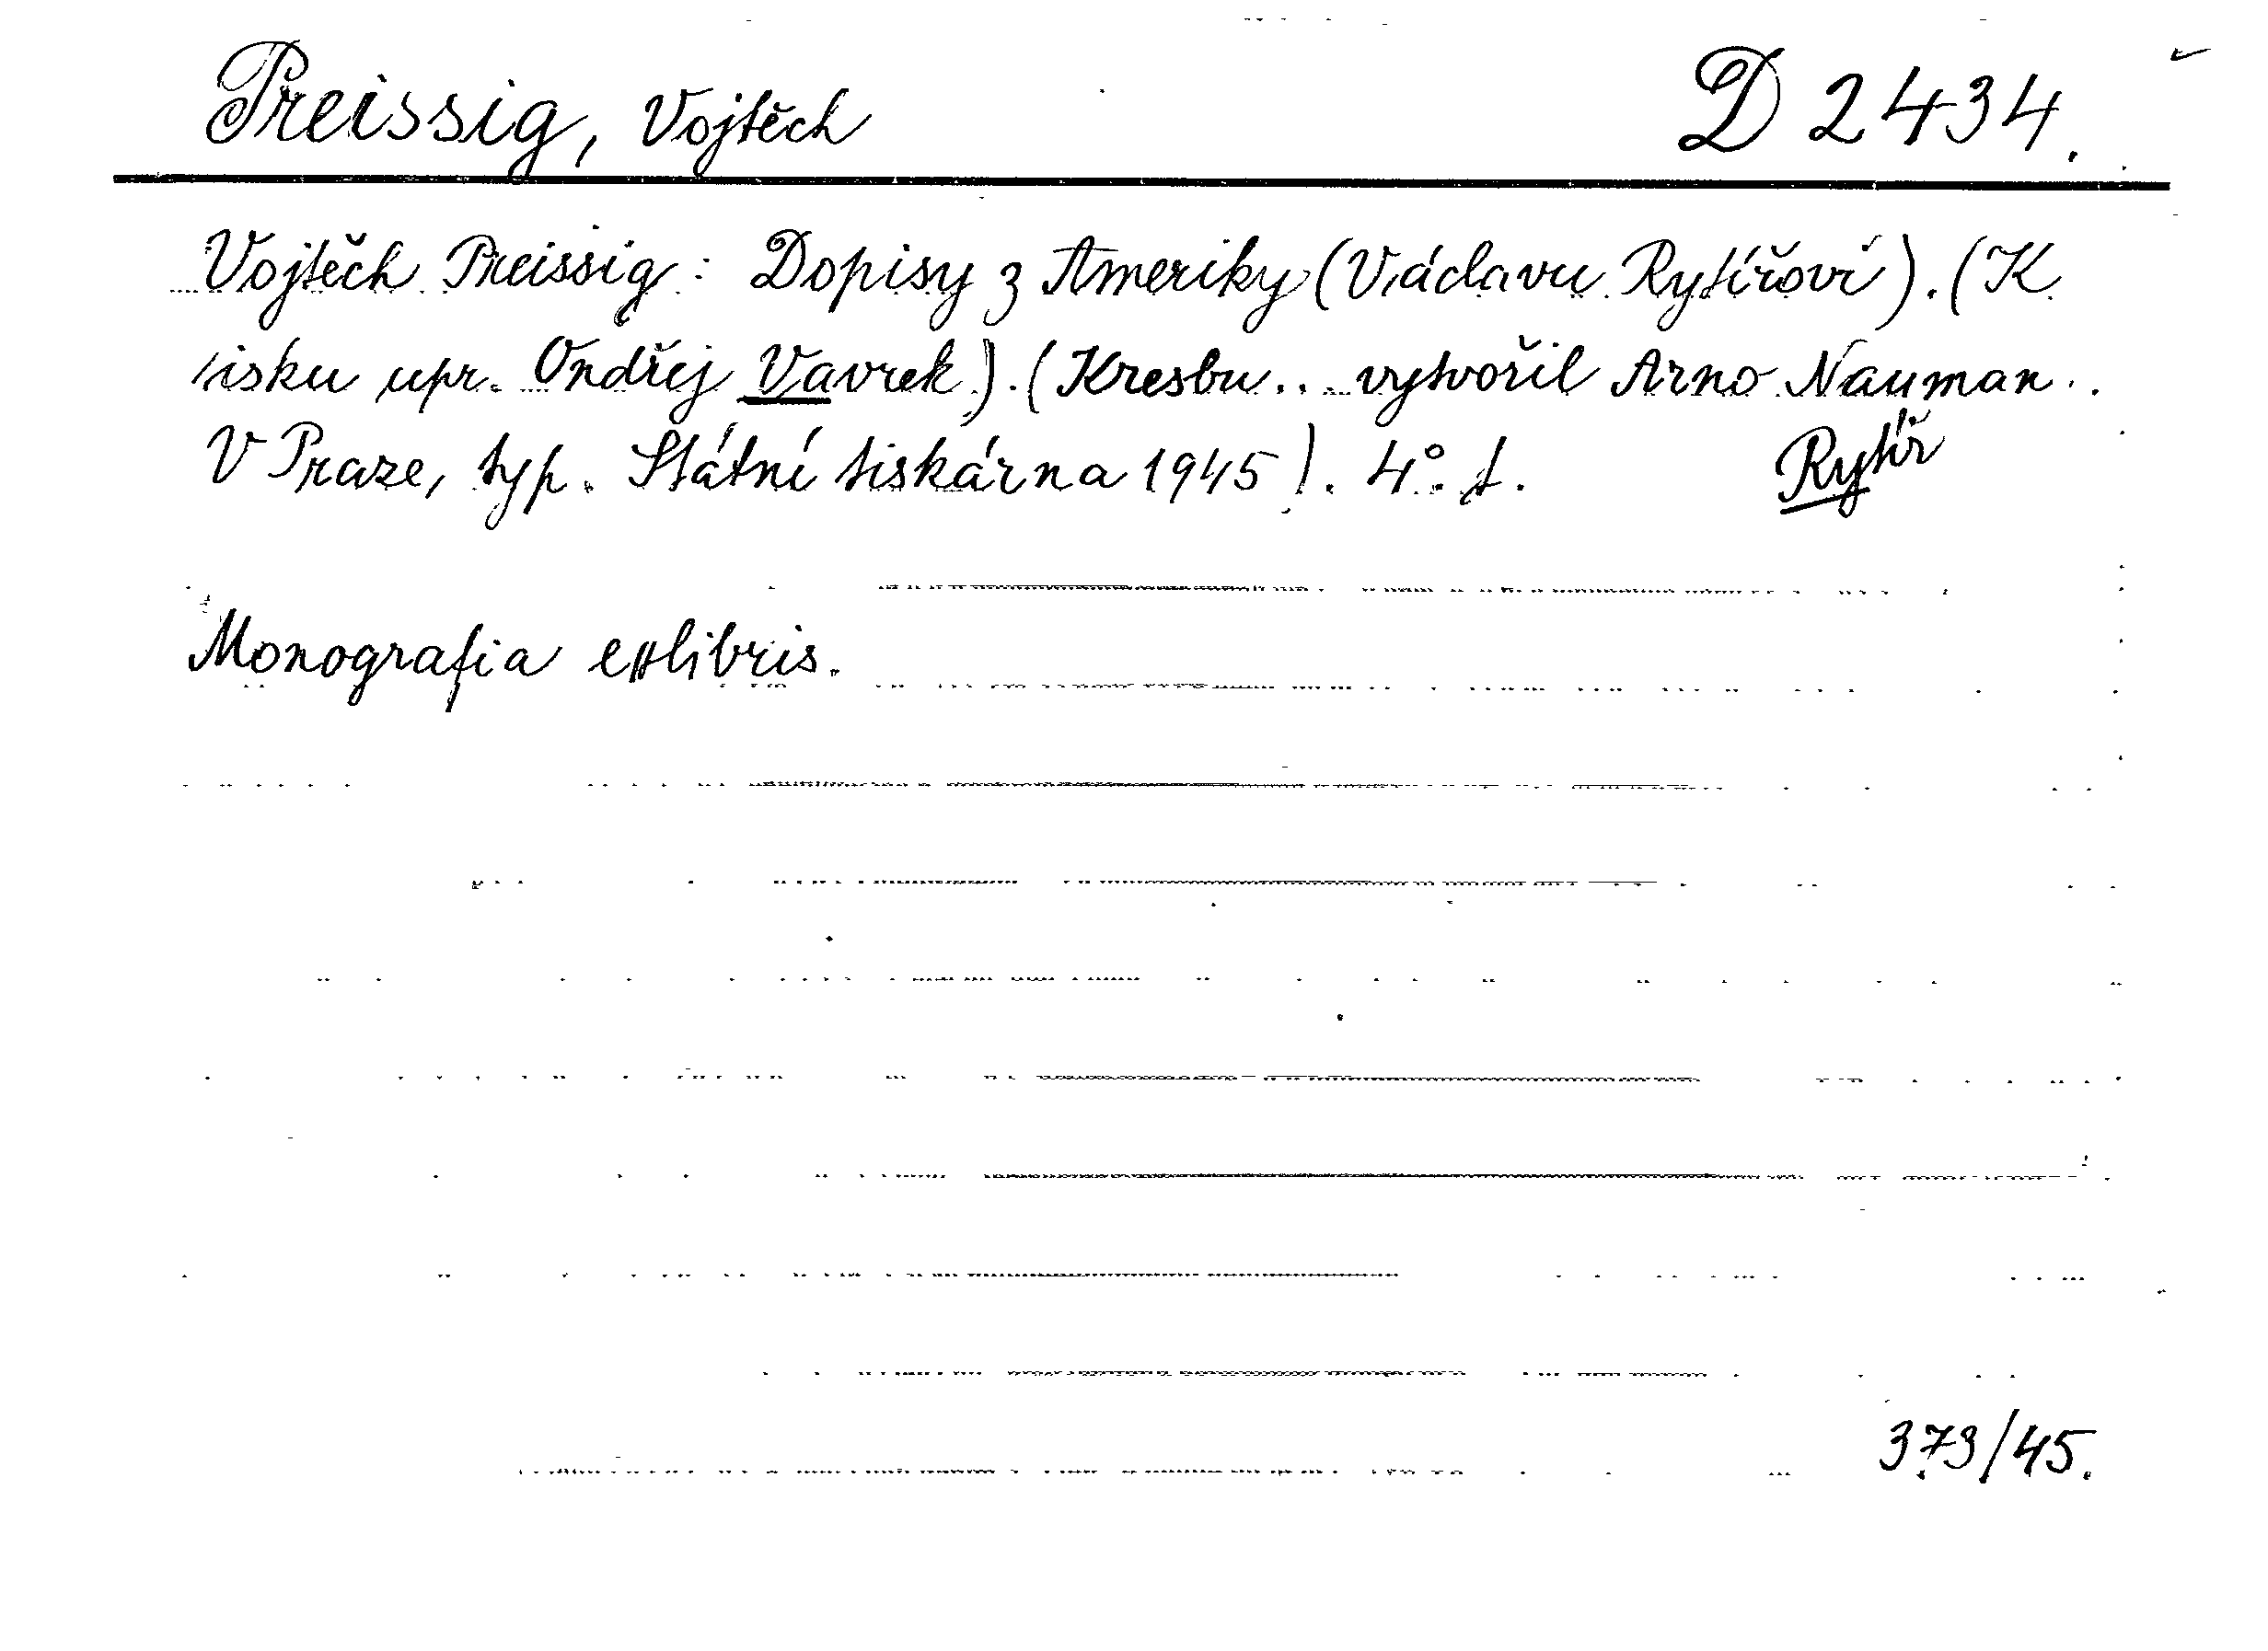 Preissig, Vojtěch D 2434.
Vojtěch Preissig: Dopisy z Ameriky (Václavu Rytířovi). (K
tisku upr. Ondřej Vavrek). (Kresbu.. vytvořil Arno Nauman..
V Praze, typ. Státní tiskárna 1945). 4°. f. Rytíř
Monografia exlibris.
373/45.